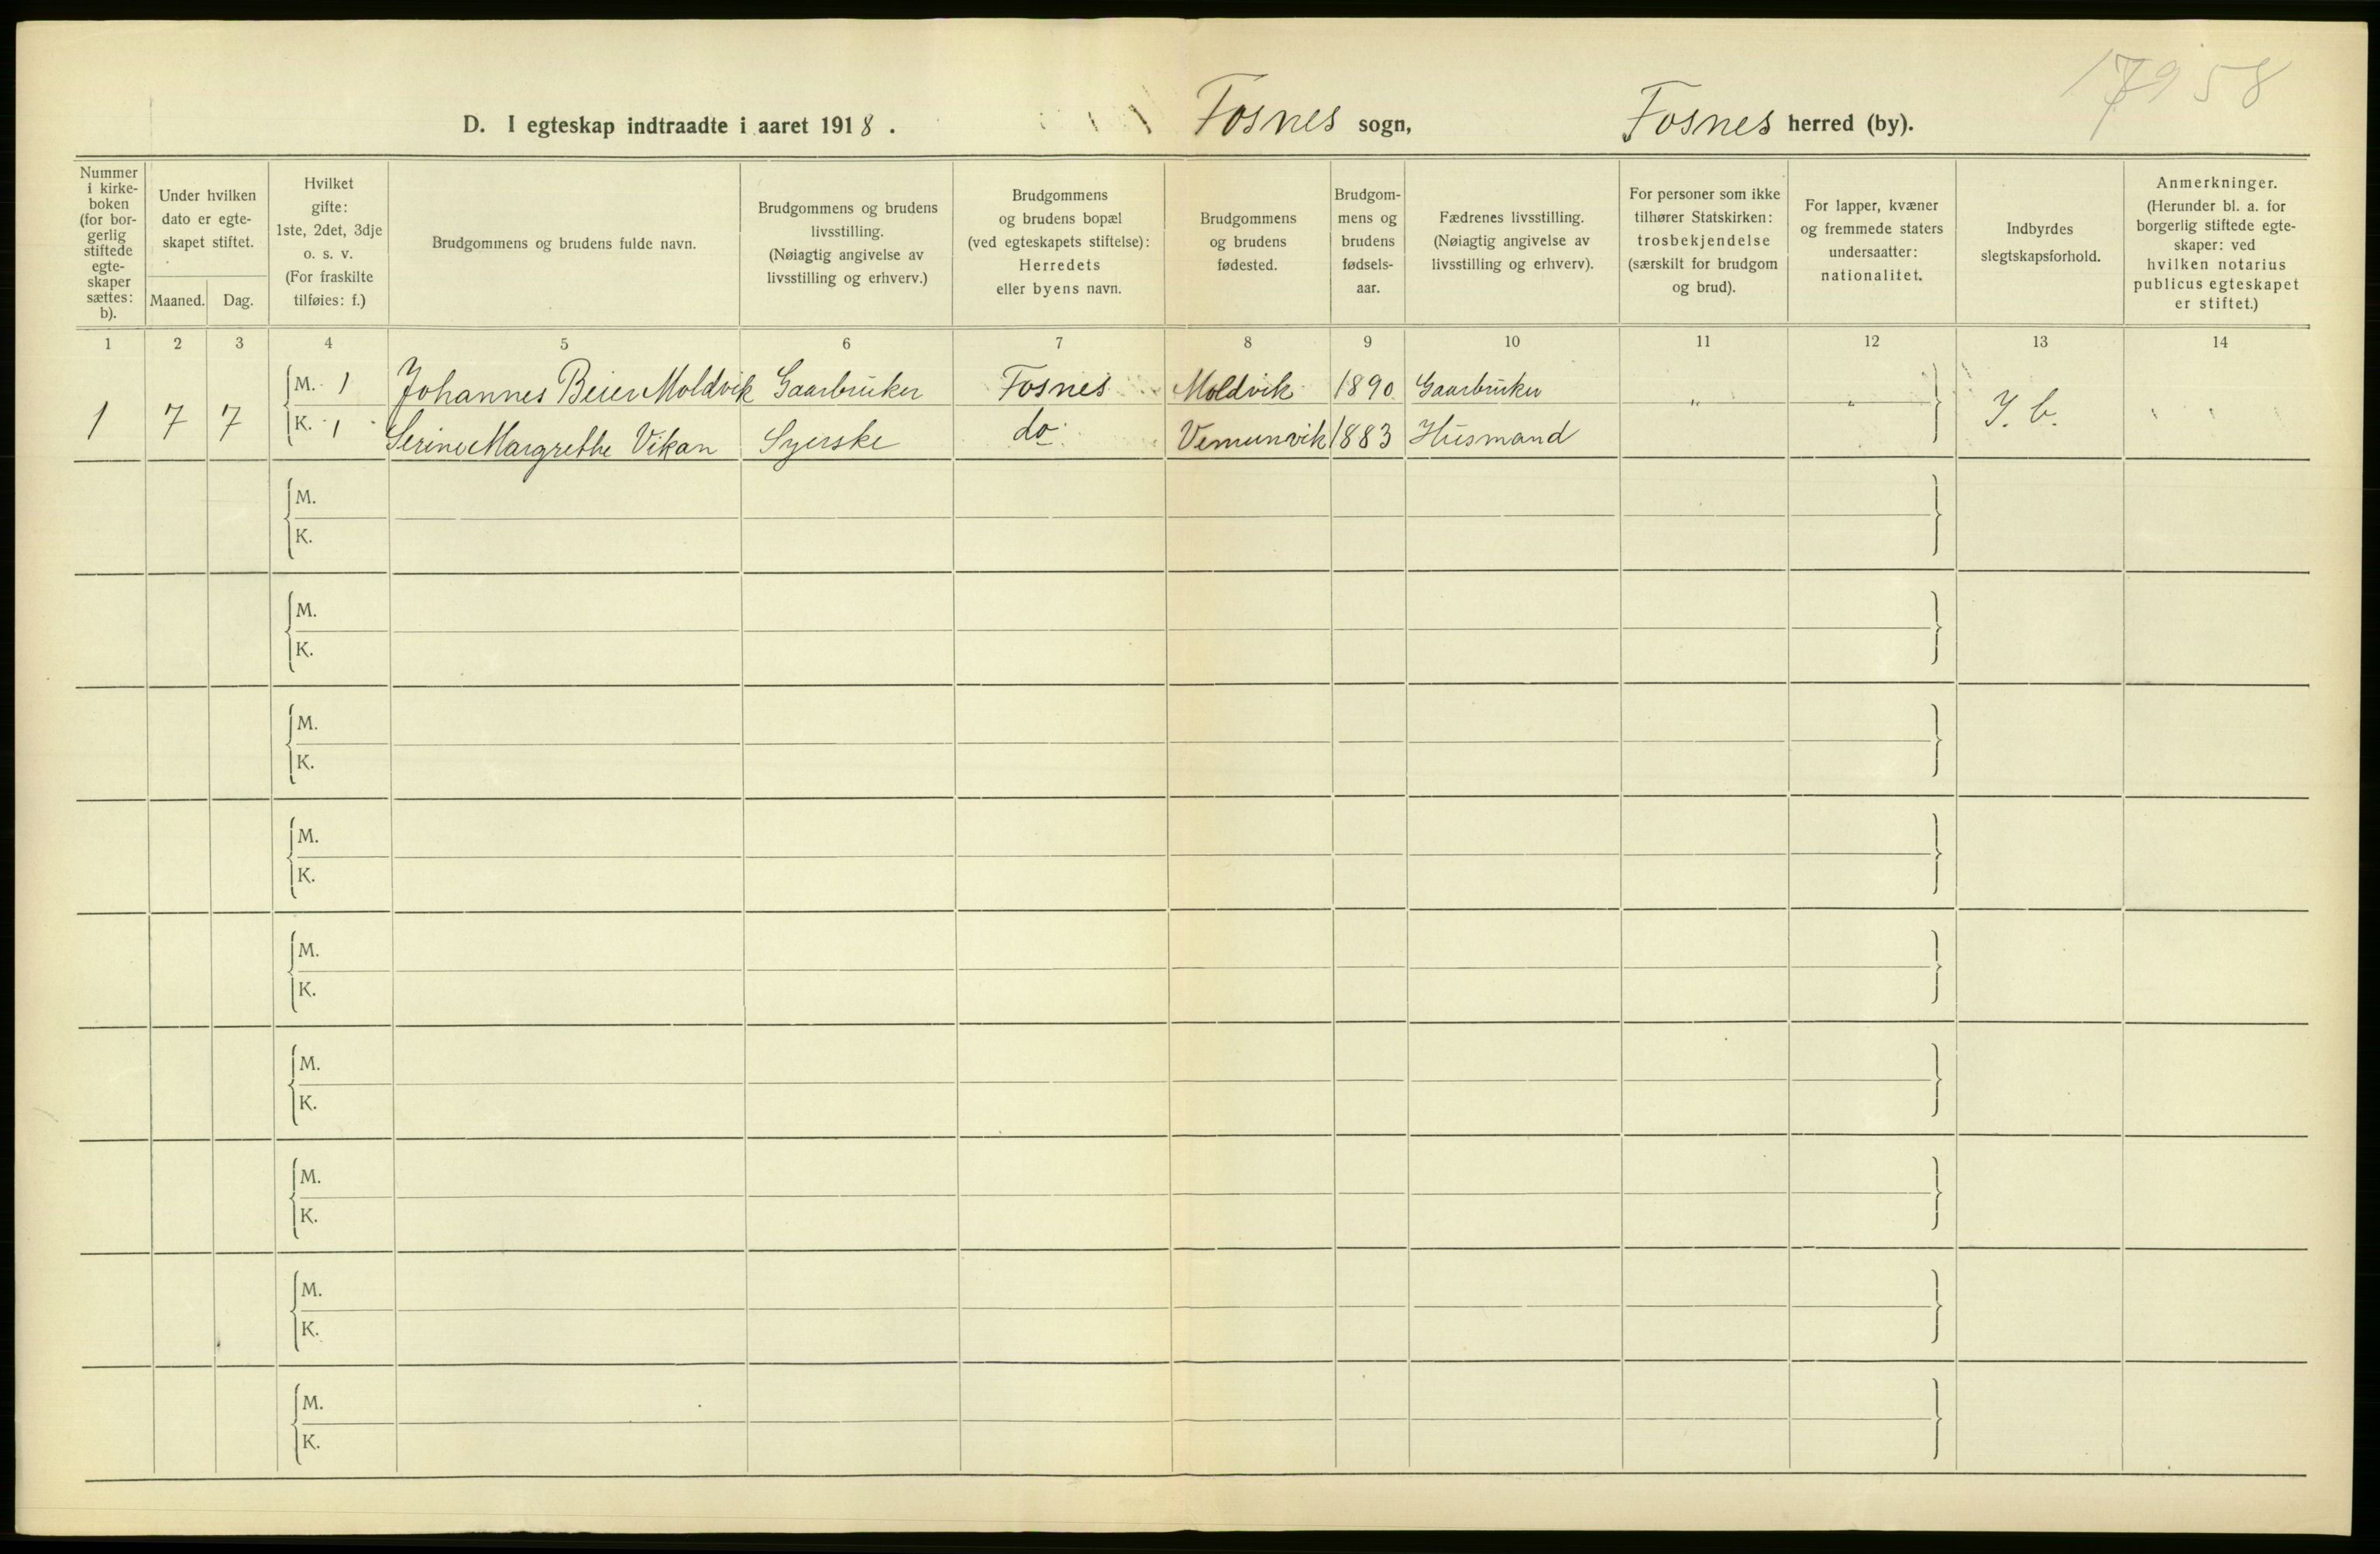 17958
D. I egteskap indtraadte i aaret 1918. Fosnes sogn, Fosnes herred (by).
Nummer i kirke-boken (for bor-gerlig stiftede egte-skaper sættes: b).
Under hvilken dato er egte-skapet stiftet.
Maaned. Dag.
Hvilket gifte: 1ste, 2det, 3dje o. s. v. (For fraskilte tilføies: f.)
Brudgommens og brudens fulde navn.
Brudgommens og brudens livsstilling. (Nøiagtig angivelse av livsstilling og erhverv.)
Brudgommens og brudens bopæl (ved egteskapets stiftelse): Herredets eller byens navn.
Brudgommens og brudens fødested.
Brudgom-mens og brudens fødsels-aar.
Fædrenes livsstilling. (Nøiagtig angivelse av livsstilling og erhverv).
For personer som ikke tilhører Statskirken: trosbekjendelse (særskilt for brudgom og brud).
For lapper, kvæner og fremmede staters undersaatter: nationalitet.
Indbyrdes slegtskapsforhold.
Anmerkninger. (Herunder bl. a. for borgerlig stiftede egte-skaper: ved hvilken notarius publicus egteskapet er stiftet.)
1 2 3 4 5 6 7 8 9 10 11 12 13 14
M. 1 Johannes Beier Moldvik Gaarbruker Fosnes Moldvik 1890 Gaarbruker " "
1 7 7 I. b.
K. 1 Serine Margrethe Vikan Syerske do Vemunvik 1883 Husmand
M.
K.
M.
K.
M.
K.
M.
K.
M.
K.
M.
K.
M.
K.
M.
K.
M.
K.